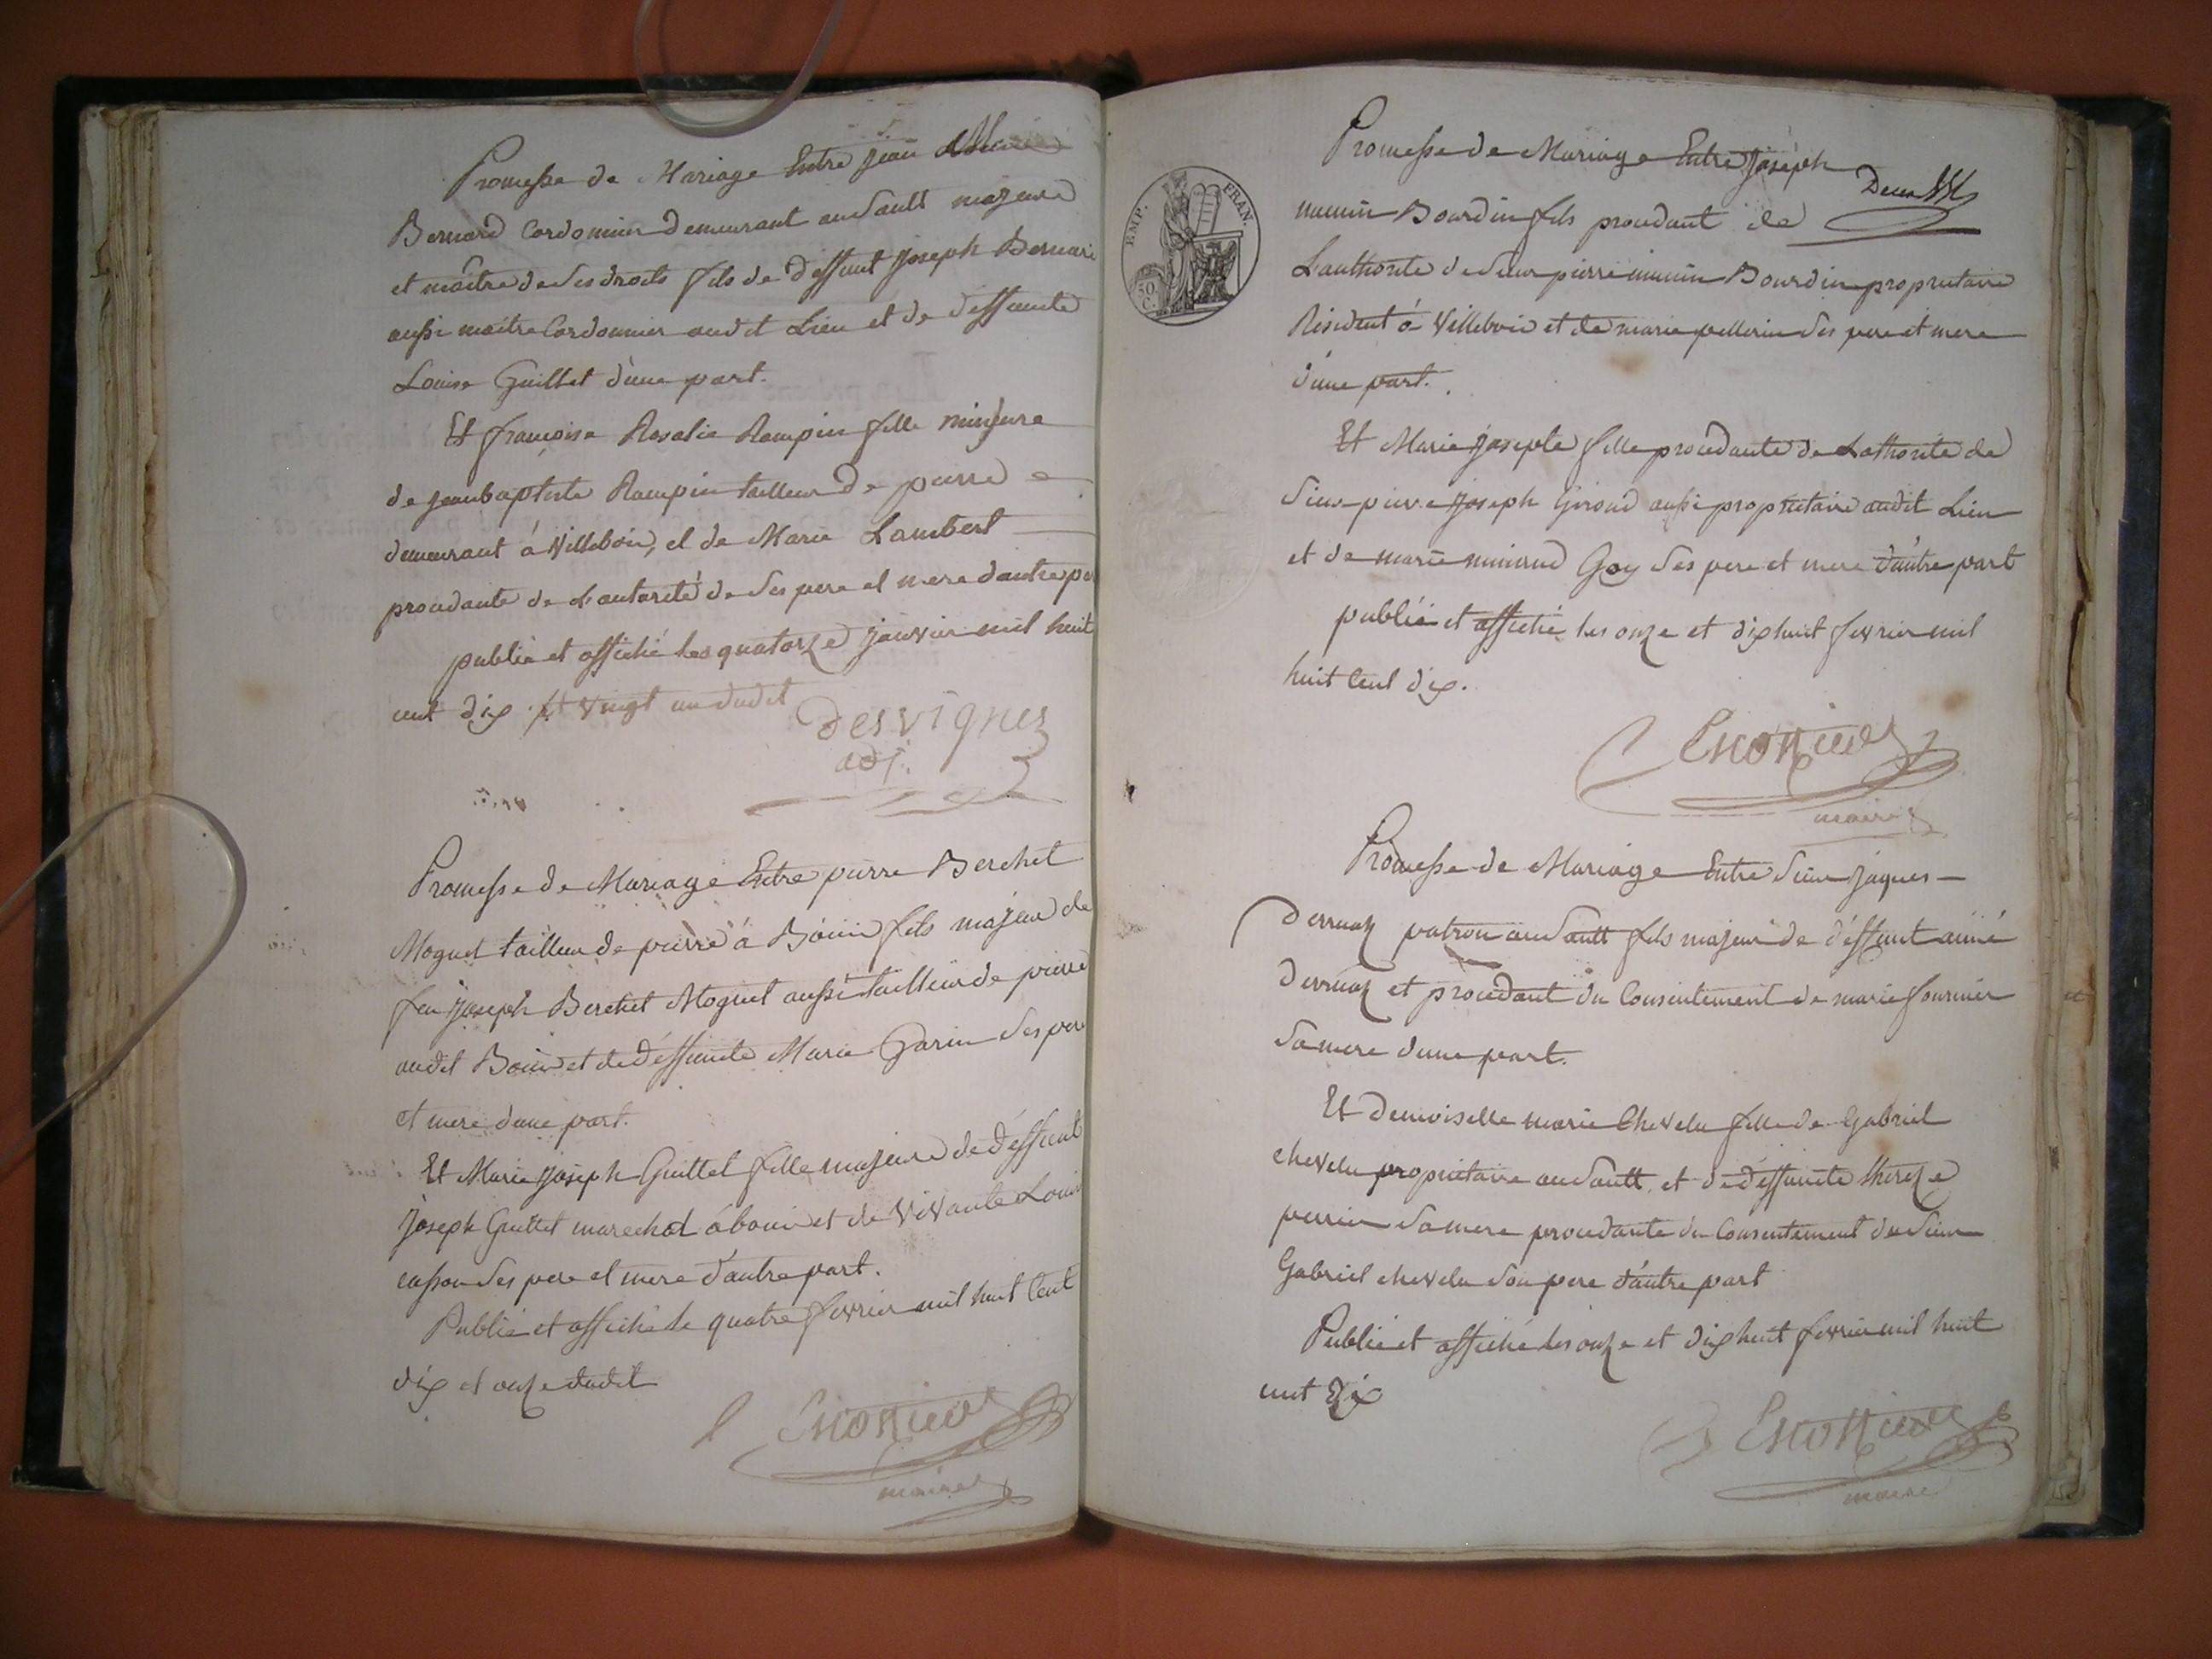 Promesse de Mariage Entre jean
Bernard Cordonnier demeurant au Sault majeure
et maitre de ses droits fils de deffunt joseph Bernard
aussi maitre Cordonnier audit Lieu et de deffunte
Louise Guillet d'une part.
Et françoise Rosalie Rampin fille mineure
de jeanbaptiste Rampin tailleur de pierre
demeurant à Villebois, et de Marie Lambert
procedante de L'autorité de ses pere et mere d'autre
publié et affiché les quatorze janvier mil huit
cent dix et vingt un dudit
Desvignes
adj.
Promesse de Mariage Entre pierre Berchet
Moguet tailleur de pierre à Bouis fils majeur de
feu joseph Berchet Moguet aussi tailleur de pierre
audit Bouis et de deffunte Marie Garin ses pere
et mere d'une part.
Et Marie joseph Guittet fille majeure de deffunt
joseph Guittet marechal à bouis et de vivante Louise
casson ses pere et mere d'autre part.
Publié et affiché le quatre fevrier mil huit Cent
dix et onze dudit
maire
EMP. FRAN.
50 C.
Promesse de Mariage Entre Joseph
Deux
Bourdin fils procedant de
L'authorite de Sieur pierre Bourdin propriétaire
Résident à Villebois et de marie pellerin ses pere et mere
d'une part.
Et Marie josephte fille procedante de Lathorité de
Sieur pierre joseph Giroud aussi propriétaire audit Lieu
et de marie Goy ses pere et mere d'autre part
publié et affiché les onze et dixhuit fevrier mil
huit Cent dix.
maire
Promesse de Mariage Entre Sieur jaques
Derruaz patron au Sault fils majeur de déffunt aimé
Derruaz et procedant du Consentement de marie fournier
Sa mere d'une part.
Et Demoiselle marie Chevelu fille de Gabriel
chevelu propriétaire au Sault, et de deffunte thereze
perrin Sa mere procedante du Consentement du Sieur
Gabriel chevelu Son pere d'autre part
Publié et affiché les onze et dixhuit fevrier mil huit
cent dix
maire